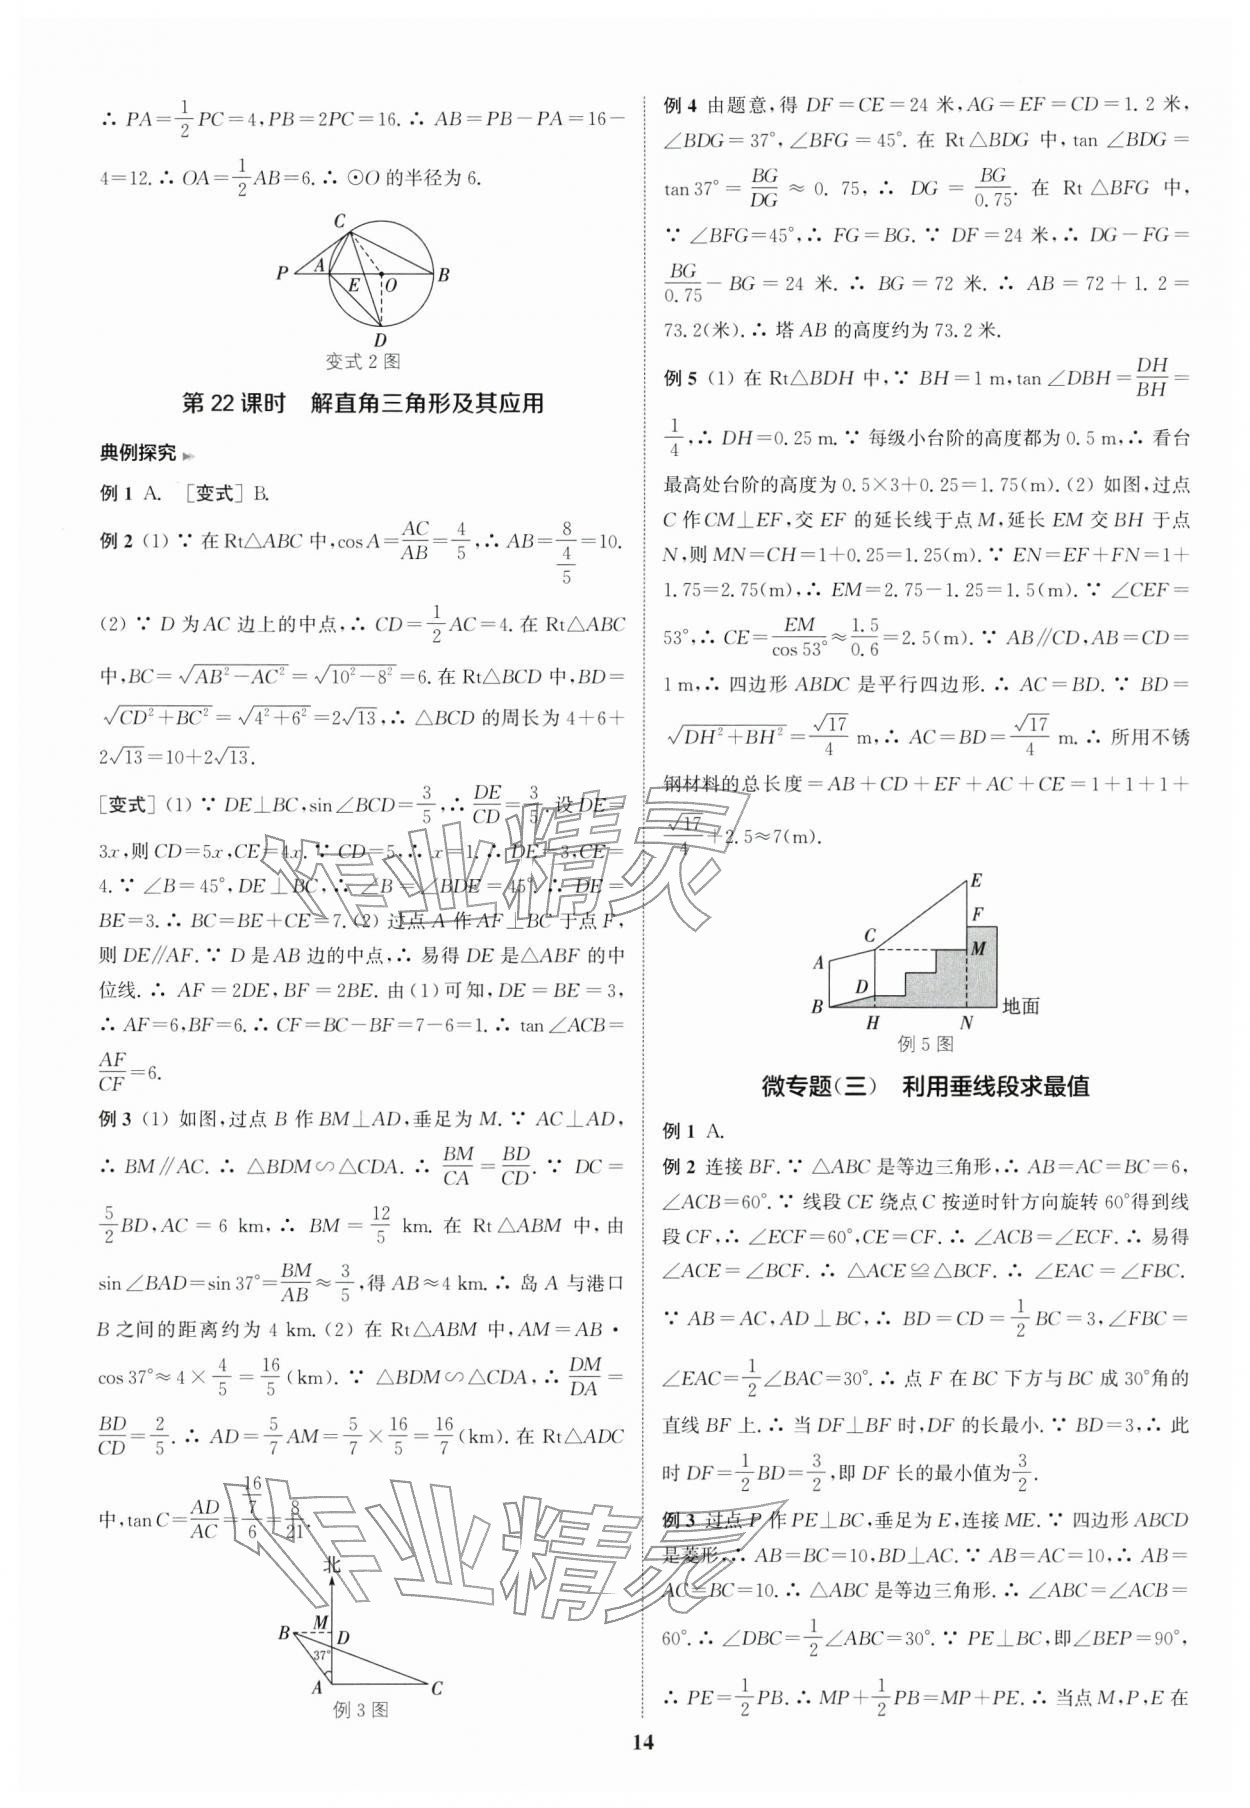 ∴ PA=1/2 PC=4,PB=2PC=16. ∴ AB=PB-PA=16-
4=12. ∴ OA=1/2 AB=6. ∴ ⊙O 的半径为 6.
C
P A E O B
D
变式 2 图
第 22 课时 解直角三角形及其应用
典例探究
例 1 A. [变式] B.
例 2 (1) ∵ 在 Rt△ABC 中,cos A=AC/AB=4/5,∴ AB=8/(4/5)=10.
(2) ∵ D 为 AC 边上的中点,∴ CD=1/2 AC=4. 在 Rt△ABC
中,BC=√(AB²-AC²)=√(10²-8²)=6. 在 Rt△BCD 中,BD=
√(CD²+BC²)=√(4²+6²)=2√13,∴ △BCD 的周长为 4+6+
2√13=10+2√13.
[变式] (1) ∵ DE⊥BC,sin∠BCD=3/5,∴ DE/CD=3/5. 设 DE=
3x,则 CD=5x,CE=4x. ∵ CD=5,∴ x=1. ∴ DE=3,CE=
4. ∵ ∠B=45°,DE⊥BC,∴ ∠B=∠BDE=45°. ∴ DE=
BE=3. ∴ BC=BE+CE=7. (2) 过点 A 作 AF⊥BC 于点 F,
则 DE∥AF. ∵ D 是 AB 边的中点,∴ 易得 DE 是△ABF 的中
位线. ∴ AF=2DE,BF=2BE. 由(1)可知,DE=BE=3,
∴ AF=6,BF=6. ∴ CF=BC-BF=7-6=1. ∴ tan∠ACB=
AF/CF=6.
例 3 (1) 如图,过点 B 作 BM⊥AD,垂足为 M. ∵ AC⊥AD,
∴ BM∥AC. ∴ △BDM∽△CDA. ∴ BM/CA=BD/CD. ∵ DC=
5/2 BD,AC=6 km,∴ BM=12/5 km. 在 Rt△ABM 中,由
sin∠BAD=sin 37°=BM/AB≈3/5,得 AB≈4 km. ∴ 岛 A 与港口
B 之间的距离约为 4 km. (2) 在 Rt△ABM 中,AM=AB·
cos 37°≈4×4/5=16/5(km). ∵ △BDM∽△CDA,∴ DM/DA=
BD/CD=2/5. ∴ AD=5/7 AM=5/7×16/5=16/7(km). 在 Rt△ADC
中,tan C=AD/AC=(16/7)/6=8/21.
北
B M D
37°
A C
例 3 图
例 4 由题意,得 DF=CE=24 米,AG=EF=CD=1.2 米,
∠BDG=37°,∠BFG=45°. 在 Rt△BDG 中,tan∠BDG=
tan 37°=BG/DG≈0.75,∴ DG=BG/0.75. 在 Rt△BFG 中,
∵ ∠BFG=45°,∴ FG=BG. ∵ DF=24 米,∴ DG-FG=
BG/0.75-BG=24 米. ∴ BG=72 米. ∴ AB=72+1.2=
73.2(米). ∴ 塔 AB 的高度约为 73.2 米.
例 5 (1) 在 Rt△BDH 中,∵ BH=1 m,tan∠DBH=DH/BH=
1/4,∴ DH=0.25 m. ∵ 每级小台阶的高度都为 0.5 m,∴ 看台
最高处台阶的高度为 0.5×3+0.25=1.75(m). (2) 如图,过点
C 作 CM⊥EF,交 EF 的延长线于点 M,延长 EM 交 BH 于点
N,则 MN=CH=1+0.25=1.25(m). ∵ EN=EF+FN=1+
1.75=2.75(m),∴ EM=2.75-1.25=1.5(m). ∵ ∠CEF=
53°,∴ CE=EM/cos 53°≈1.5/0.6=2.5(m). ∵ AB∥CD,AB=CD=
1 m,∴ 四边形 ABDC 是平行四边形. ∴ AC=BD. ∵ BD=
√(DH²+BH²)=√17/4 m,∴ AC=BD=√17/4 m. ∴ 所用不锈
钢材料的总长度=AB+CD+EF+AC+CE=1+1+1+
√17/4+2.5≈7(m).
E
F
C
M
A
D
B
H N 地面
例 5 图
微专题(三) 利用垂线段求最值
例 1 A.
例 2 连接 BF. ∵ △ABC 是等边三角形,∴ AB=AC=BC=6,
∠ACB=60°. ∵ 线段 CE 绕点 C 按逆时针方向旋转 60°得到线
段 CF,∴ ∠ECF=60°,CE=CF. ∴ ∠ACB=∠ECF. ∴ 易得
∠ACE=∠BCF. ∴ △ACE≌△BCF. ∴ ∠EAC=∠FBC.
∵ AB=AC,AD⊥BC,∴ BD=CD=1/2 BC=3,∠FBC=
∠EAC=1/2∠BAC=30°. ∴ 点 F 在 BC 下方与 BC 成 30°角的
直线 BF 上. ∴ 当 DF⊥BF 时,DF 的长最小. ∵ BD=3,∴ 此
时 DF=1/2 BD=3/2,即 DF 长的最小值为 3/2.
例 3 过点 P 作 PE⊥BC,垂足为 E,连接 ME. ∵ 四边形 ABCD
是菱形,∴ AB=BC=10,BD⊥AC. ∵ AB=AC=10,∴ AB=
AC=BC=10. ∴ △ABC 是等边三角形. ∴ ∠ABC=∠ACB=
60°. ∴ ∠DBC=1/2∠ABC=30°. ∵ PE⊥BC,即∠BEP=90°,
∴ PE=1/2 PB. ∴ MP+1/2 PB=MP+PE. ∴ 当点 M,P,E 在
14
作业精灵
作业精灵